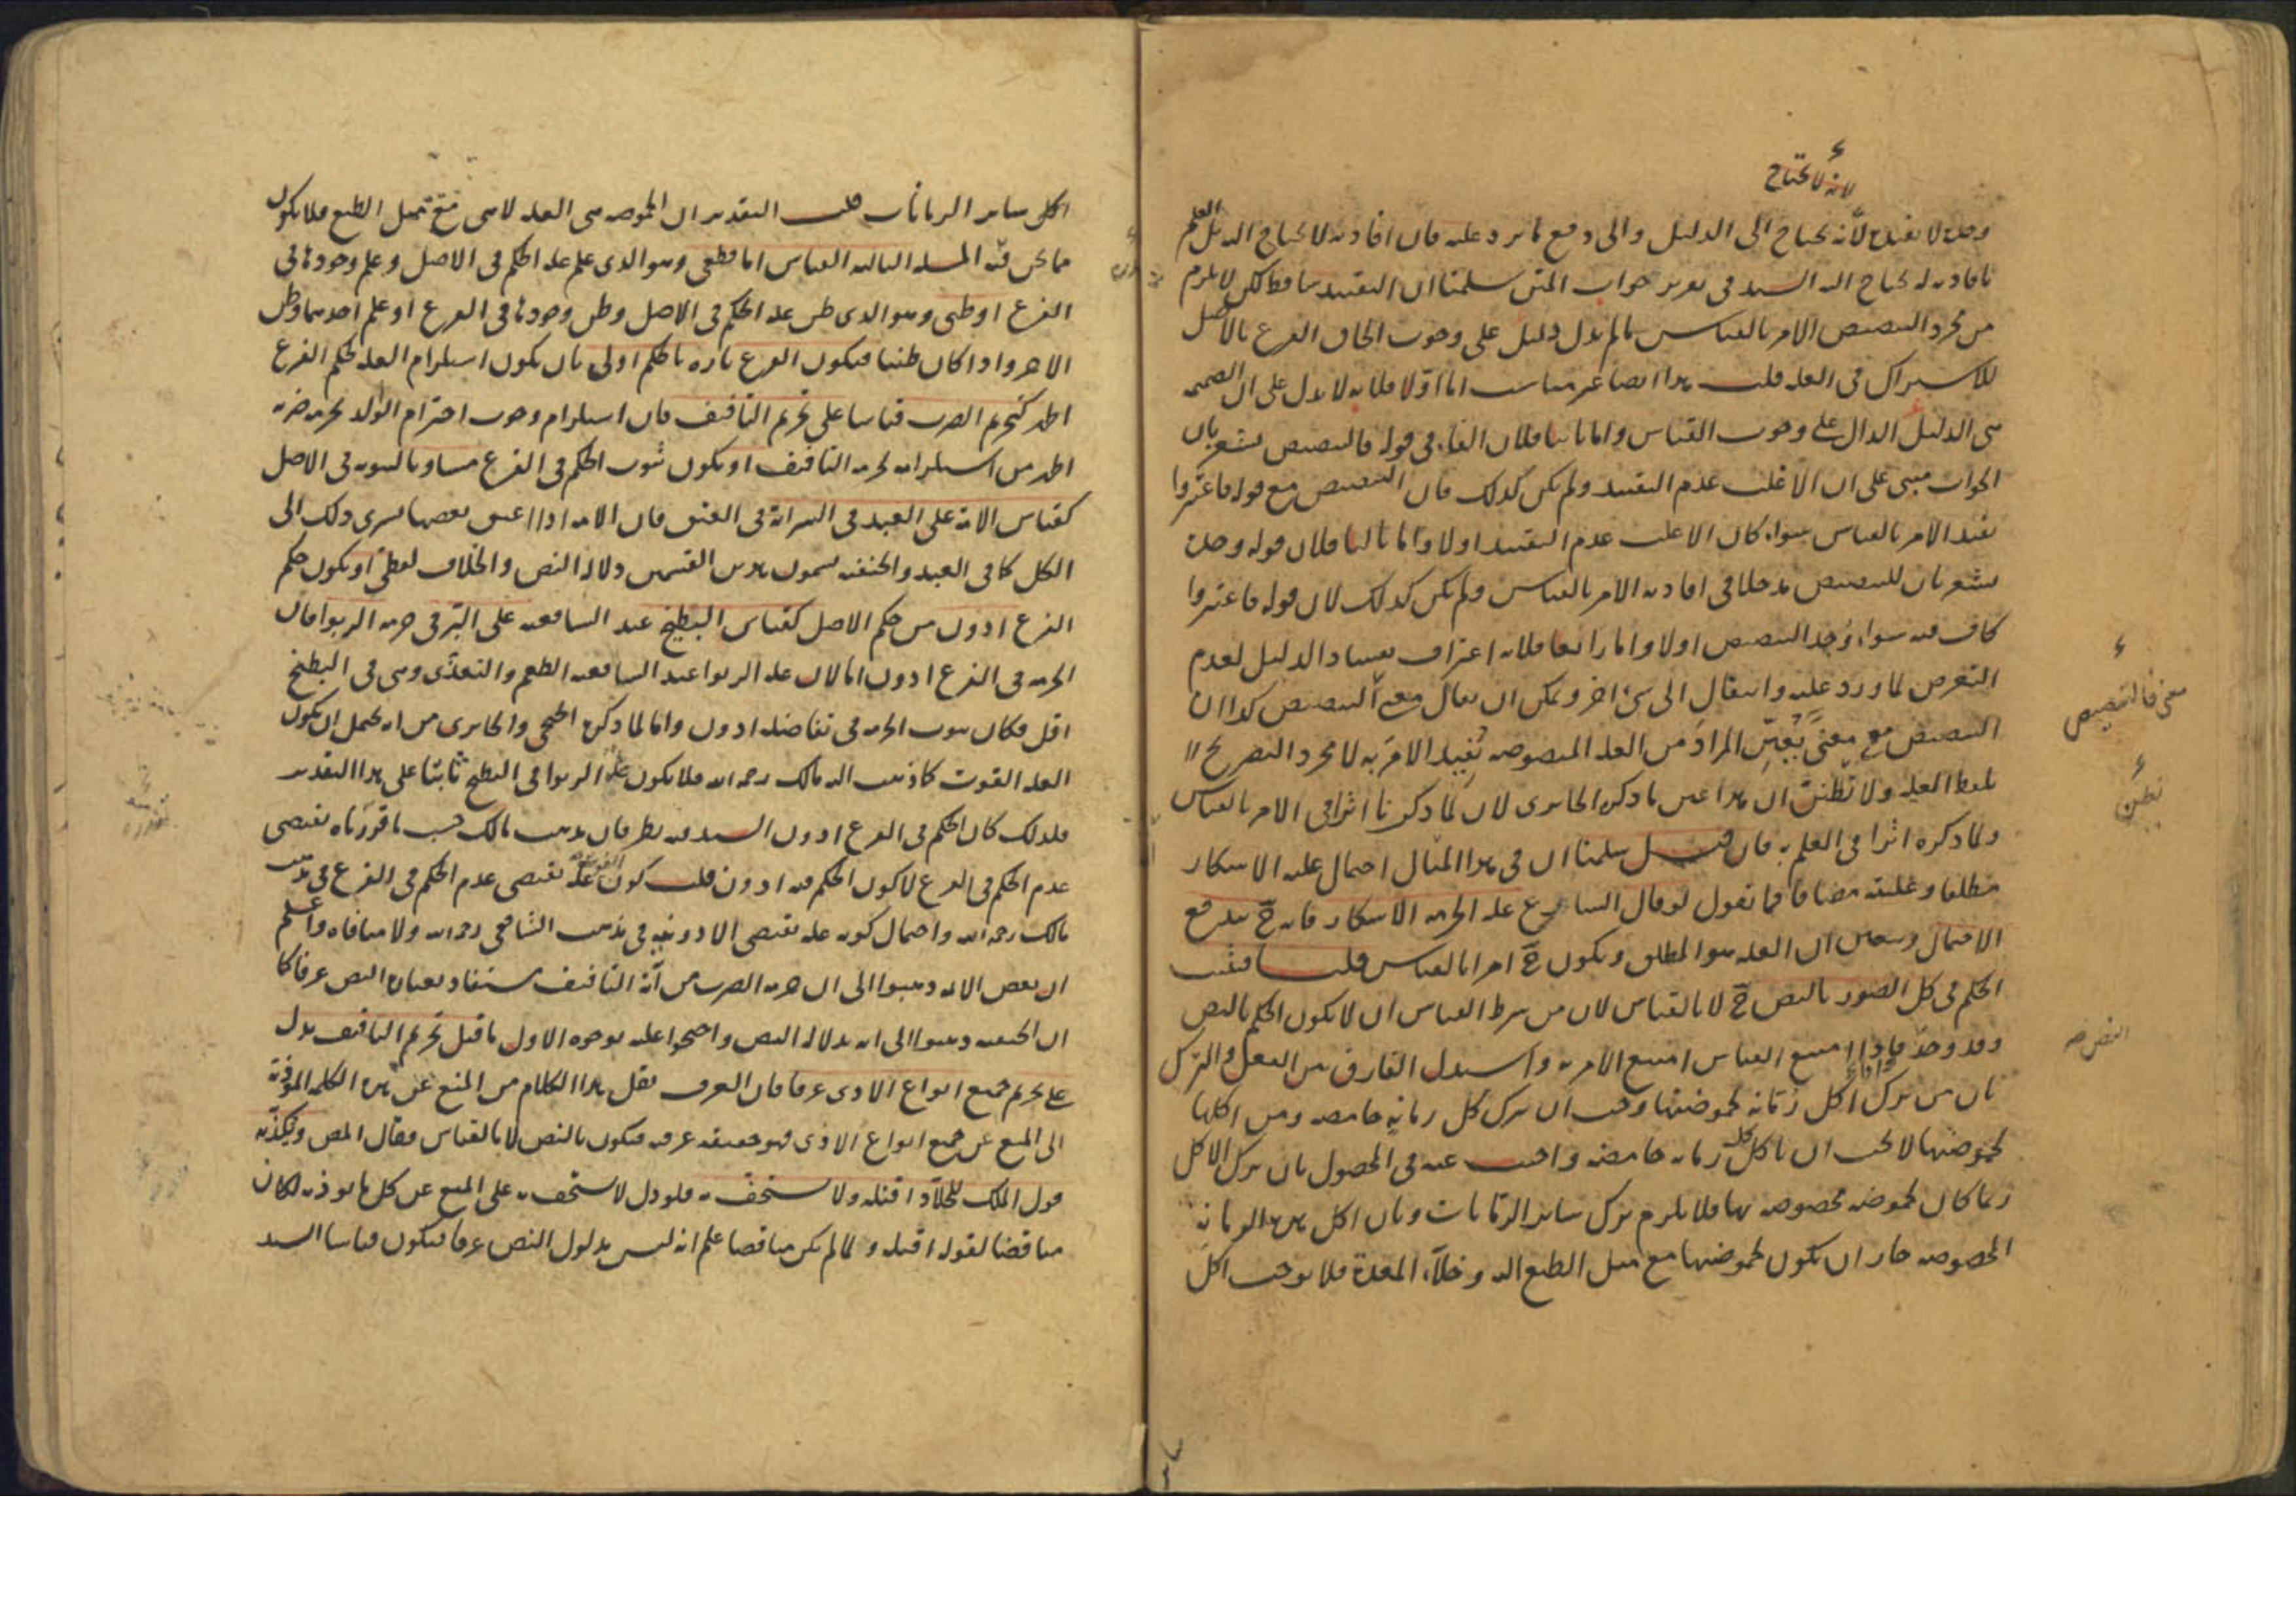 لانه لا يحتاج
وحده لا يفيد لانه يحتاج الى الدليل والى دفع ما يرد عليه فان افادته لا يحتاج اليه بل العلم
بافادته له يحتاج اليه السيد في تعزير جواب المتن سلمنا ان التقييد ساقط لكن لا يلزم
من مجرد التنصيص الامر بالقياس ما لم يدل دليل على وجوب الحاق الفرع بالاصل
للاشتراك في العلة قلت هذا ايضا غير مناسب اما اولا فلانه لا يدل على ان
هي الدليل الدال على وجوب القياس واما ثانيا فلان الفاء في قوله فالتنصيص يشعر بان
الجواب مبني على ان الاغلب عدم التقييد ولم يكن كذلك فان التنصيص مع قوله فاعتبروا
يفيد الامر بالقياس سواء كان الاغلب عدم التقييد اولا واما ثالثا فلان قوله وحده
يشعر بان للتنصيص مدخلا في افادته الامر بالقياس ولم يكن كذلك لان قوله فاعتبروا
كاف فيه سواء وجد التنصيص اولا واما رابعا فلانه اعتراف بفساد الدليل لعدم
التعرض لما ورد عليه وانتقال الى شيء اخر ويمكن ان يقال معنى التنصيص كذا ان
التنصيص مع معنى يعين المراد من العلة المنصوصة يفيد الامر به لا مجرد التصريح
بلفظ العلة ولا تظنن ان هذا عين ما ذكره الجابردي لان لما ذكرنا اثرا في الامر بالقياس
ولما ذكره اثرا في العلم به فان قيل سلمنا ان في هذا المثال احتمال علية الاسكار
مطلقا وعليته مضافا فما تقول لو قال الشارع علة الحرمة الاسكار فانه ح يندفع
الاحتمال ويتعين ان العلة هو المطلق ويكون ح امرا بالقياس قلنا فيثبت
الحكم في كل الصور بالنص ح لا بالقياس لان من شرط القياس ان لا يكون الحكم بالنص
وقد وجد فاذا امتنع القياس امتنع الامر به واستدل الفارق بين الفعل والترك
بان من ترك اكل رمانة لحموضتها وجب ان يترك كل رمانة حامضة ومن اكلها
لحموضتها لا يجب ان ياكل كل رمانة حامضة واجيب عنه في المحصول بان ترك الاكل
ربما كان لحموضة مخصوصة بها فلا يلزم ترك ساير الرمانات وبان اكل هذه الرمانة
المخصوصة جاز ان يكون لحموضتها مع ميل الطبع اليه وخلاء المعدة فلا يوجب اكل
معنى فالتنصيص
تظن
النص
اكل ساير الرمانات قلت التقدير ان الحموضة هي العلة لا هي مع ميل الطبع فلا يكون
مما نحن فيه المسئلة الثالثة القياس اما قطعي وهو الذي علم علة الحكم في الاصل وعلم وجودها في
الفرع او ظني وهو الذي ظن علة الحكم في الاصل وظن وجودها في الفرع او علم احدهما وظن
الاخر واذا كان ظنيا فيكون الفرع تارة بالحكم اولى بان يكون استلزام العلة لحكم الفرع
اظهر كتحريم الضرب قياسا على تحريم التافيف فان استلزام وجوب احترام الوالد لحرمة ضربه
اظهر من استلزامه لحرمة التافيف او يكون ثبوت الحكم في الفرع مساويا لثبوته في الاصل
كقياس الامة على العبد في السراية في العتق فان الامة اذا اعتق بعضها يسري ذلك الى
الكل كما في العبد والحنفية يسمون هذين القسمين دلالة النص والخلاف لفظي او يكون حكم
الفرع ادون من حكم الاصل كقياس البطيخ عند الشافعية على البر في حرمة الربوا فان
الحرمة في الفرع ادون اما لان علة الربوا عند الشافعية الطعم والتغذي وهي في البطيخ
اقل فكان ثبوت الحرمة في تفاضله ادون واما لما ذكره الخنجي والجابردي من انه يحتمل ان يكون
العلة القوت كما ذهب اليه مالك رحمه الله فلا يكون علة الربوا في البطيخ ثابتا على هذا التقدير
فلذلك كان الحكم في الفرع ادون السيد فيه نظر فان مذهب مالك حسب ما قررناه يقتضي
عدم الحكم في الفرع لا كون الحكم فيه ادون قلت كون القوت علة يقتضي عدم الحكم في الفرع في مذهب
مالك رحمه الله واحتمال كونه علة يقتضي الادونية في مذهب الشافعي رحمه الله ولا منافاة واعلم
ان بعض الائمة ذهبوا الى ان حرمة الضرب من آية التافيف مستفاد بعبارة النص عرفا كما
ان الحنفية ذهبوا الى انه بدلالة النص واحتجوا عليه بوجوه الاول ما قيل تحريم التافيف يدل
على تحريم جميع انواع الاذى عرفا فان العرف نقل هذا الكلام من المنع عن هذه الكلمة الموذية
الى المنع عن جميع انواع الاذى فهو حقيقة عرفية فيكون بالنص لا بالقياس فقال المص ويكذبه
قول الملك للجلاد اقتله ولا تستخف به فلو دل لا تستخف به على المنع عن كل ما يوذيه لكان
مناقضا لقوله اقتله ولما لم يكن مناقضا علم انه ليس مدلول النص عرفا فيكون قياسا السيد